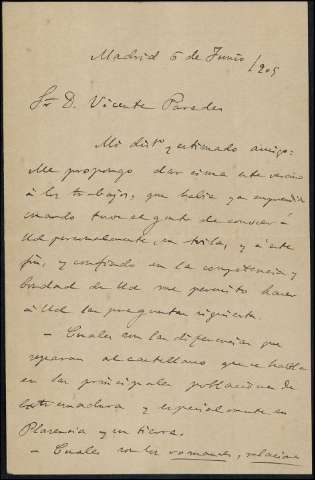 Madrid 6 de Junio /905
Sr D. Vicente Paredes
Mi distº y estimado amigo:
Me propongo dar cima este verano
á los trabajos, que había ya emprendido
cuando tuve el gusto de conocer á
Ud personalmente, en Avila, y á este
fin, y confiado en la competencia y
bondad de Ud me permito hacer
á Ud las preguntas siguientes.
— Cuales son las diferencias que
separan al castellano que se habla
en las principales poblaciones de
Extremadura y especialmente en
Plasencia y su tierra.
— Cuales son los romances, relaciones